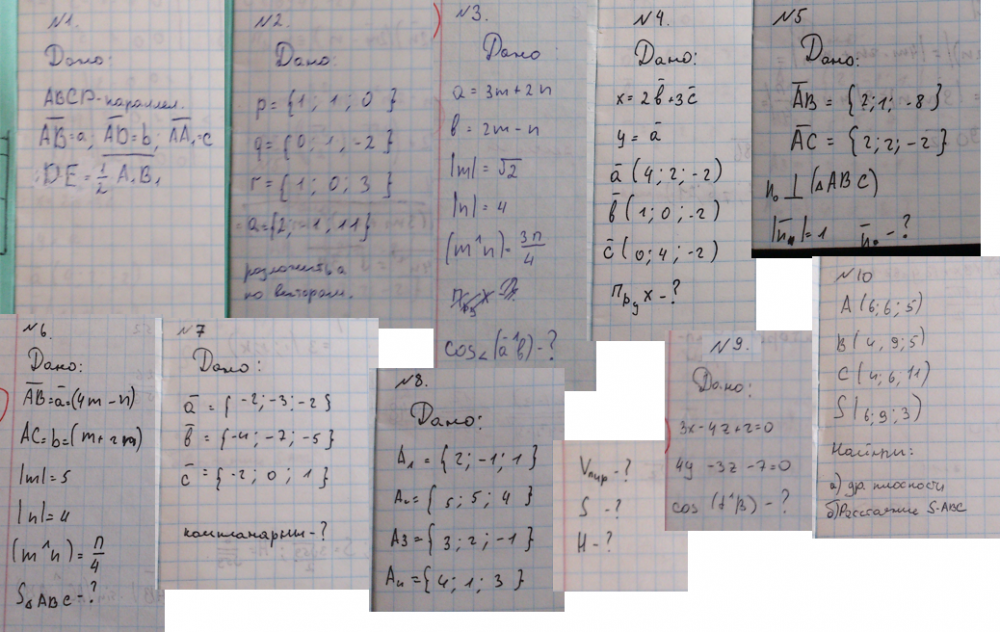 №1.
Дано:
ABCD-параллел.
AB=a, AD=b, AA₁=c
DE=1/2 A₁B₁
№2.
Дано:
p={1; 1; 0}
q={0; 1; -2}
r={1; 0; 3}
a={2; -1; 11}
разложить a
по векторам.
№3.
Дано
a=3m+2n
b=2m-n
|m|=√2
|n|=4
(m^n)=3π/4
cos∠(a^b)-?
№4.
Дано:
x=2b+3c
y=a
a(4; 2; -2)
b(1; 0; -2)
c(0; 4; -2)
Пр_y x-?
№5
Дано:
AB={2; 1; -8}
AC={2; 2; -2}
n₀⊥(△ABC)
|n₀|=1 n₀-?
№6.
Дано:
AB=a=(4m-n)
AC=b=(m+2n)
|m|=5
|n|=4
(m^n)=π/4
S△ABC-?
№7
Дано:
a={-2; -3; -2}
b={-4; -2; -5}
c={-2; 0; 1}
компланарны-?
№8.
Дано:
A₁={2; -1; 1}
A₂={5; 5; 4}
A3={3; 2; -1}
A₄={4; 1; 3}
Vпир-?
S-?
H-?
№9.
Дано:
3x-4z+2=0
4y-3z-7=0
cos(α^β)-?
№10
A(6; 6; 5)
B(4, 9; 5)
C(4; 6, 11)
S(6; 9; 3)
Найти:
а) ур. плоскости
б) Расстояние S-ABC